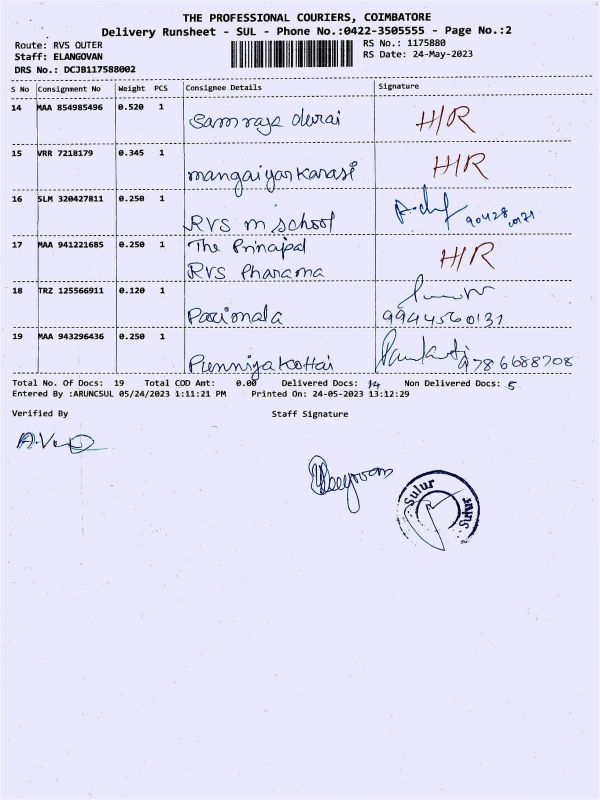 THE PROFESSIONAL COURIERS, COIMBATORE
Delivery Runsheet - SUL - Phone No.:0422-3505555 - Page No.:2
Route: RVS OUTER
RS No.: 1175880
Staff: ELANGOVAN
RS Date: 24-May-2023
DRS No.: DCJB117588002
S No Consignment No Weight PCS Consignee Details Signature
14 MAA 854985496 0.520 1 Samraja devai H/R
15 VRR 7218179 0.345 1 mangaiyarkarasi H/R
16 SLM 320427811 0.250 1 RVS m school
17 MAA 941221685 0.250 1 The Prinapal H/R
RVS Pharama
18 TRZ 125566911 0.120 1 Parimala
9944560131
19 MAA 943296436 0.250 1 Punniyakottai 9786688708
Total No. Of Docs: 19 Total COD Amt: 0.00 Delivered Docs: 14 Non Delivered Docs: 5
Entered By :ARUNCSUL 05/24/2023 1:11:21 PM Printed On: 24-05-2023 13:12:29
Verified By Staff Signature
Sulur
Sulur